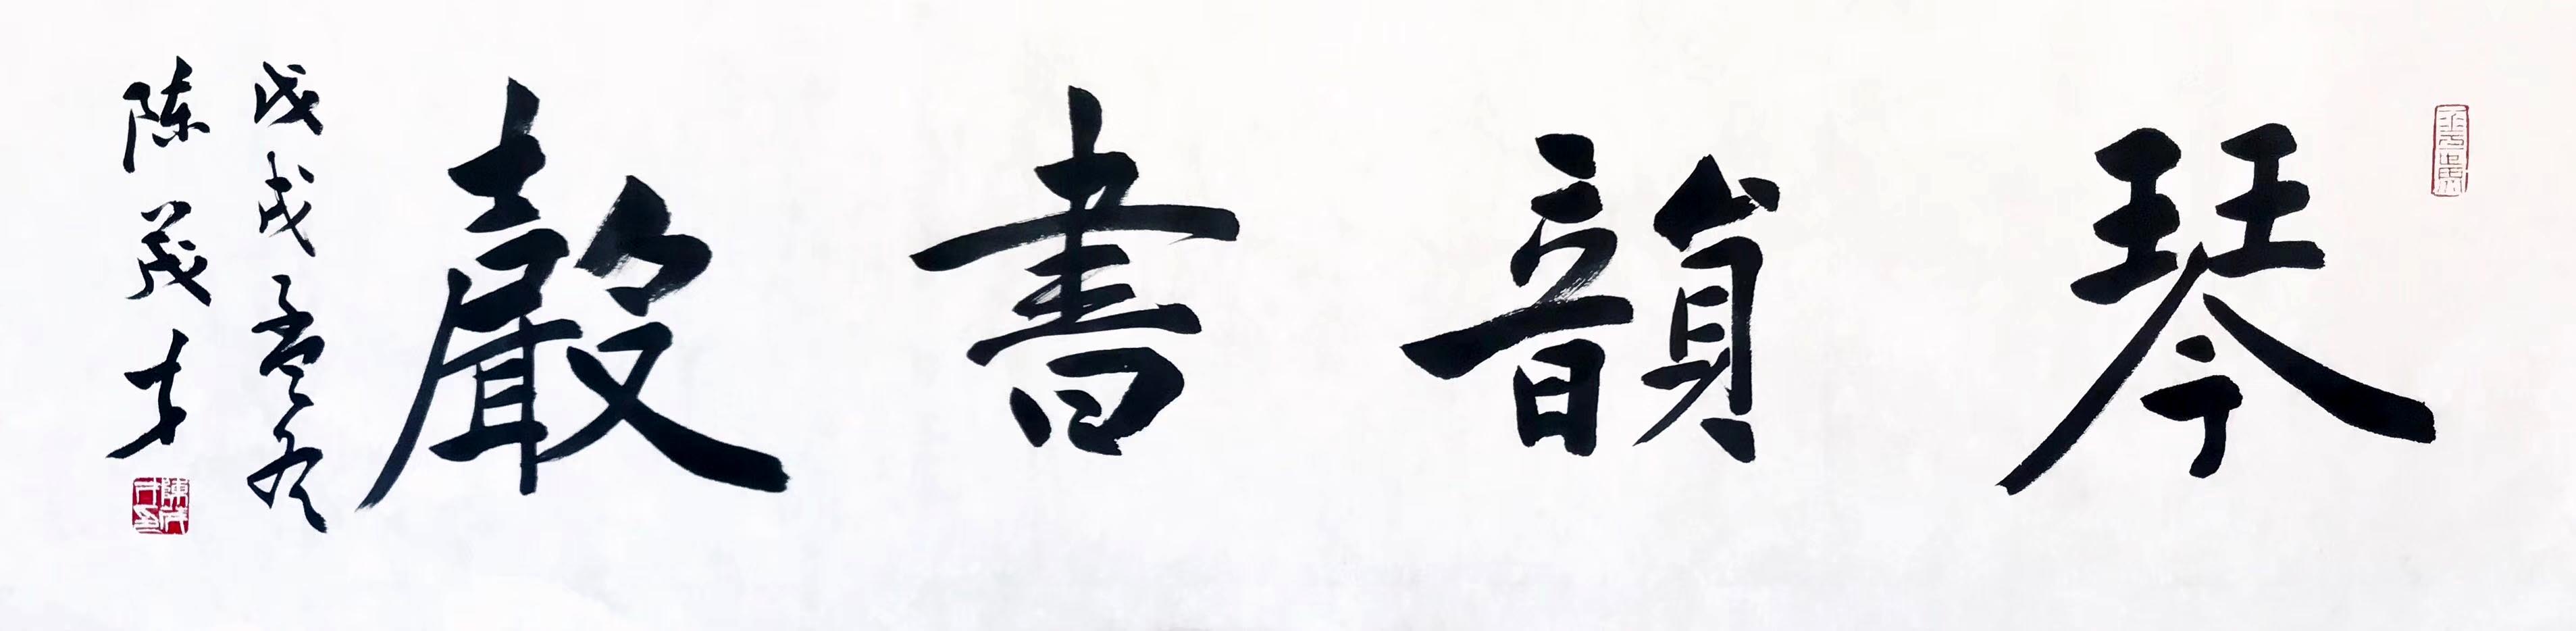 琴韻書聲
戊戌孟冬
陈茂才
陳茂才印